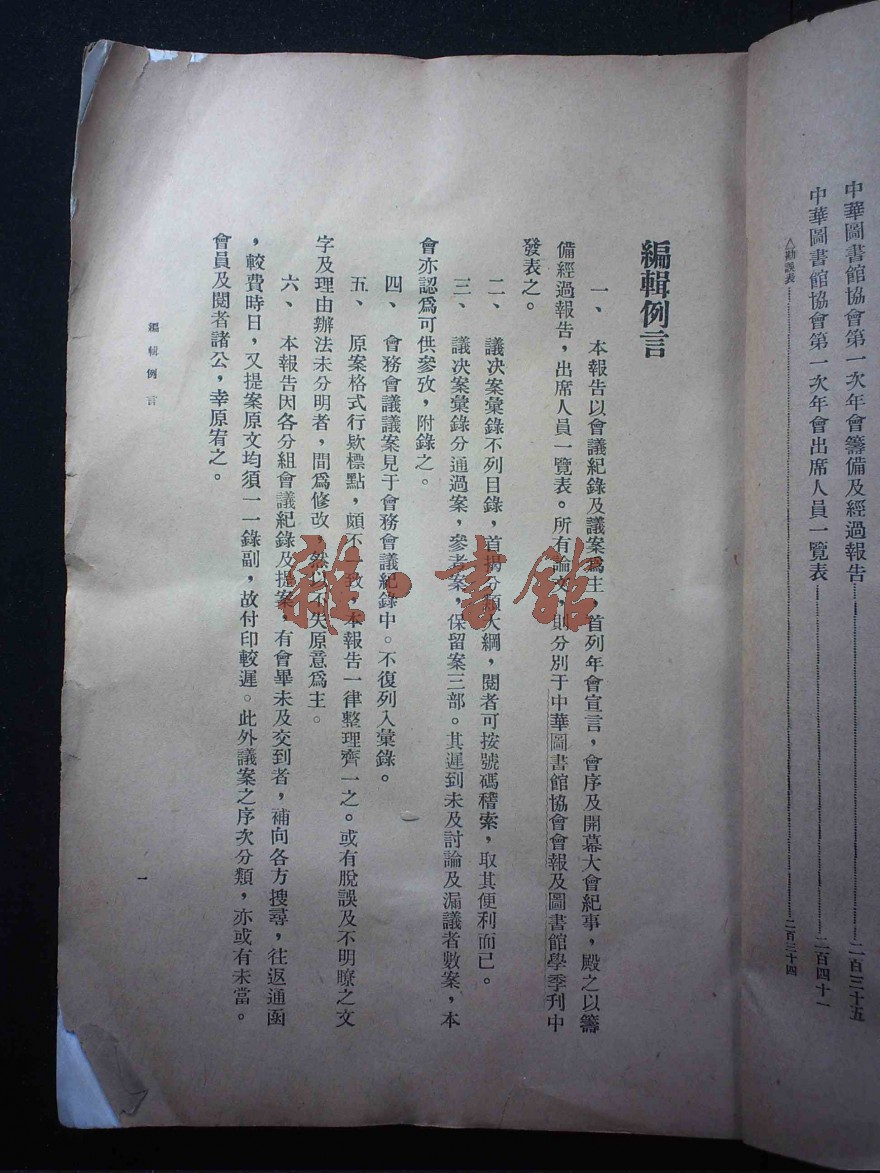 中華圖書館協會第一次年會籌備及經過報告………二百三十五
中華圖書館協會第一次年會出席人員一覽表………二百四十一
△勘誤表………二百三十四
編輯例言
一、 本報告以會議紀錄及議案爲主，首列年會宣言，會序及開幕大會紀事，殿之以籌
備經過報告，出席人員一覽表。所有論文，則分別于中華圖書館協會會報及圖書館學季刊中
發表之。
二、 議決案彙錄不列目錄，首揭分類大綱，閱者可按號碼稽索，取其便利而已。
三、 議決案彙錄分通過案，參考案，保留案三部。其遲到未及討論及漏議者數案，本
會亦認爲可供參攷，附錄之。
四、 會務會議議案見于會務會議紀錄中。不復列入彙錄。
五、 原案格式行欵標點，頗不一致，本報告一律整理齊一之。或有脫誤及不明瞭之文
字及理由辦法未分明者，間爲修改，然以不失原意爲主。
六、 本報告因各分組會議紀錄及提案，有會畢未及交到者，補向各方搜尋，往返通函
，較費時日，又提案原文均須一一錄副，故付印較遲。此外議案之序次分類，亦或有未當。
會員及閱者諸公，幸原宥之。
編輯例言
一
雜·書館